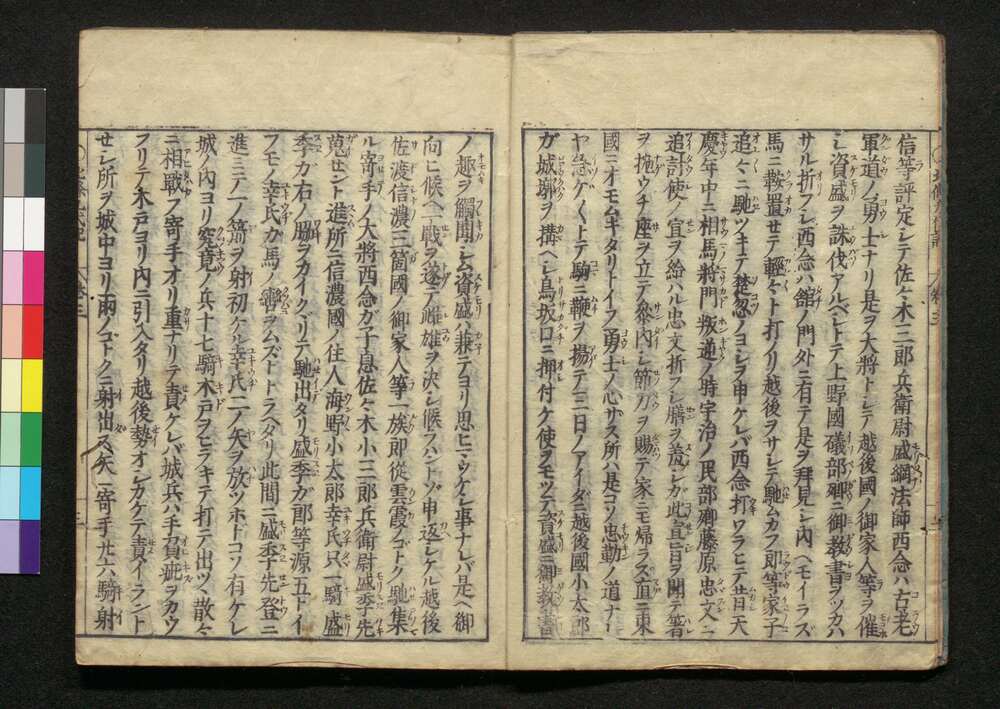 信等評定シテ佐々木三郎兵衛尉盛綱法師西念ハ古老
軍道ノ勇士ナリ是ヲ大將トシテ越後國ノ御家人等ヲ催
シ資盛ヲ誅伐アルベシトテ上野國礒部郷ニ御教書ヲツカハ
サル折フシ西念ハ館ノ門外ニ有テ是ヲ拜見シ内ヘモイラズ
馬ニ鞍置せテ輕々ト打ノリ越後ヲサシテ馳ムカフ即等家子
追々ニ馳ツキテ楚忽ノヨシヲ申ケレバ西念打ワラヒテ昔天
慶年中ニ相馬將門叛逆ノ時宇治ノ民部卿藤原忠文ニ
追討使ノ宣ヲ給ハル忠文折フシ膳ヲ羞シカ此宣旨ヲ聞テ箸
ヲ抛ウチ座ヲ立テ參内シ節刀ヲ賜テ家ニモ帰ラズ直ニ東
國ニオモムキタリトイフ勇士ノ心ザス所ハ是コソ忠勤ノ道ナレ
ヤ急ケ〱トテ駒ニ鞭ヲ揚テ三日ノアイダニ越後國小太郎
ガ城郭ヲ搆ヘシ鳥坂口ニ押付ケ使ヲモツテ資盛ニ御教書
ノ趣ヲ觸聞シム資盛ハ兼テヨリ思ヒマウケシ事ナレバ是ヘ御
向ヒ候ヘ一戰ヲ遂テ雌雄ヲ決シ候フハントゾ申返シケル越後
佐渡信濃三箇國ノ御家人等一族郎從雲霞ノゴトクノ馳集
ル寄手ノ大將西念ガ子息佐々木小三郎兵衛尉盛季先
蒐せント進所ニ信濃國ノ住人海野小太郎幸氏只一騎盛
季カ右ノ脇ヲカイクグリテ馳出タリ盛季ガ郎等源五トイ
フモノ幸氏ガ馬ノ轡ヲムズトトラヘタリ此間ニ盛季先登ニ
進ミテ一ノ箭ヲ射初ケル幸氏二ノ矢ヲ放ツホドコソ有ケレ
城ノ内ヨリ究竟ノ兵十七騎木戸ヲヒラキテ打テ出ツヽ散々
ニ相戰フ寄手オリ重ナリテ責ケレバ城兵ハ手負疵ヲカウ
フリテ木戸ヨリ内ニ引入タリ越後勢オシカケテ責イラント
せシ所ヲ城中ヨリ雨ノゴトクニ射出ス矢ニ寄手廿六騎射